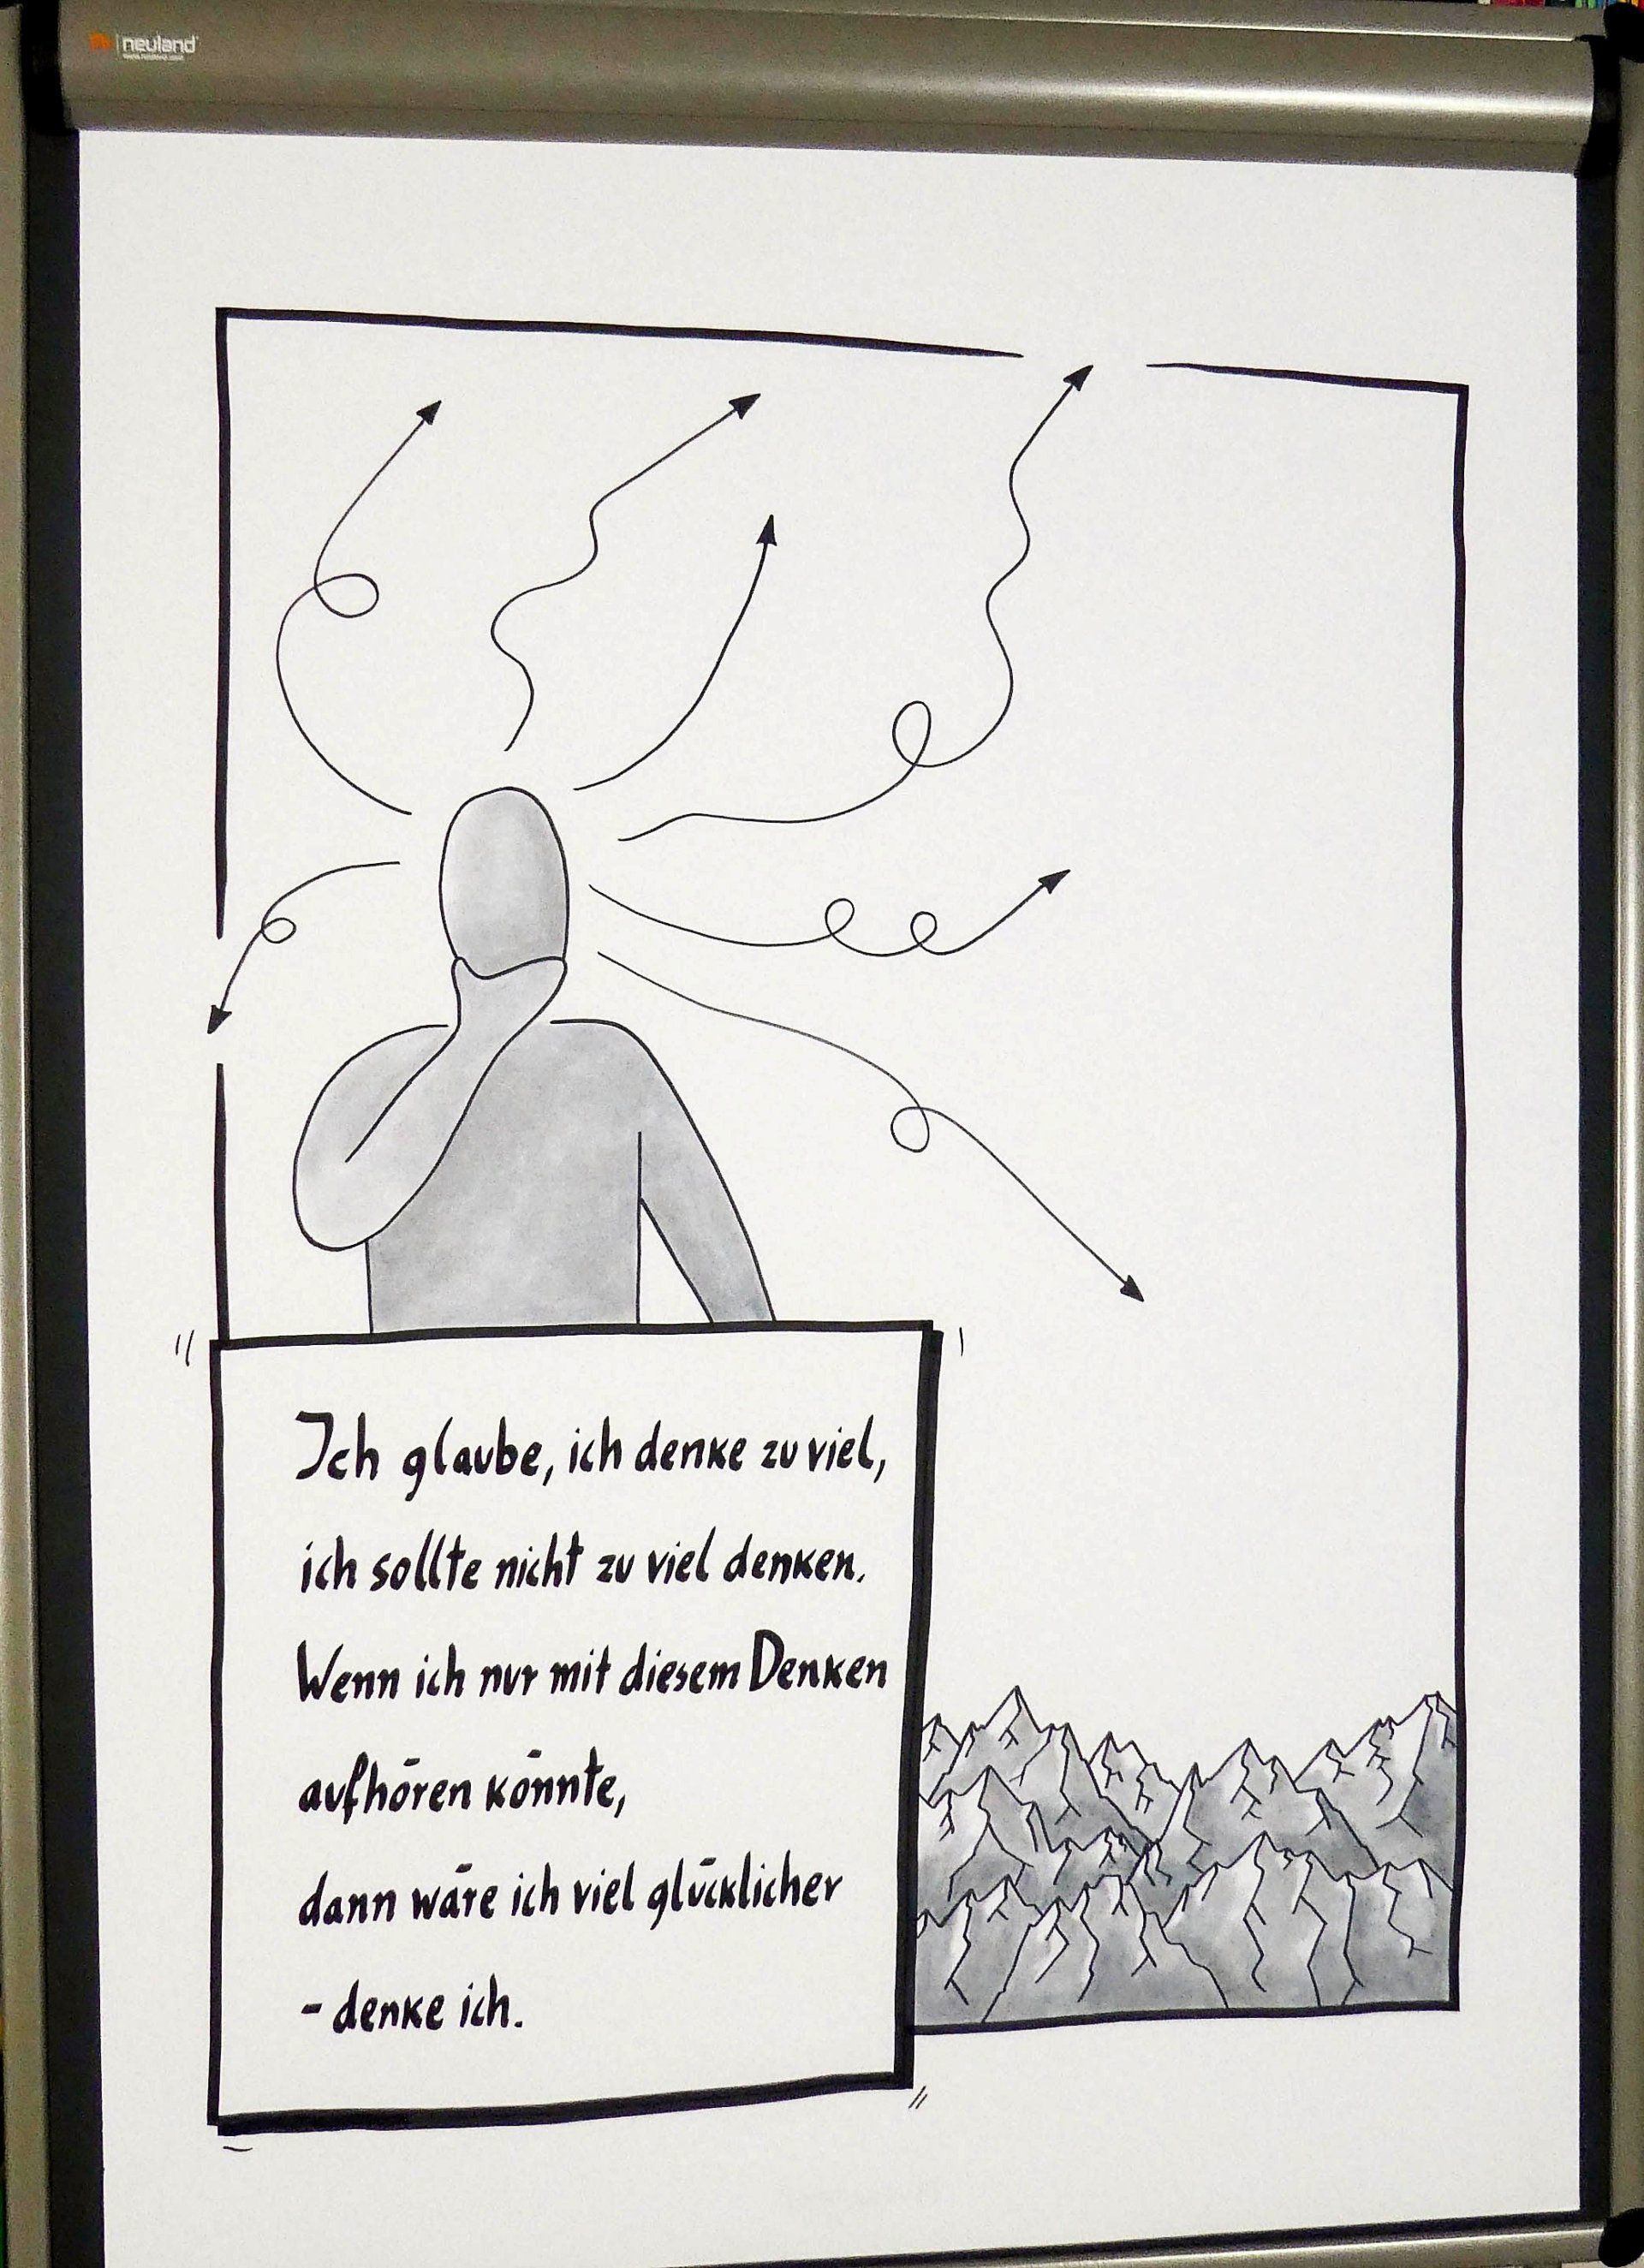 neuland
Ich glaube, ich denke zu viel,
ich sollte nicht zu viel denken.
Wenn ich nur mit diesem Denken
aufhören könnte,
dann wäre ich viel glücklicher
- denke ich.